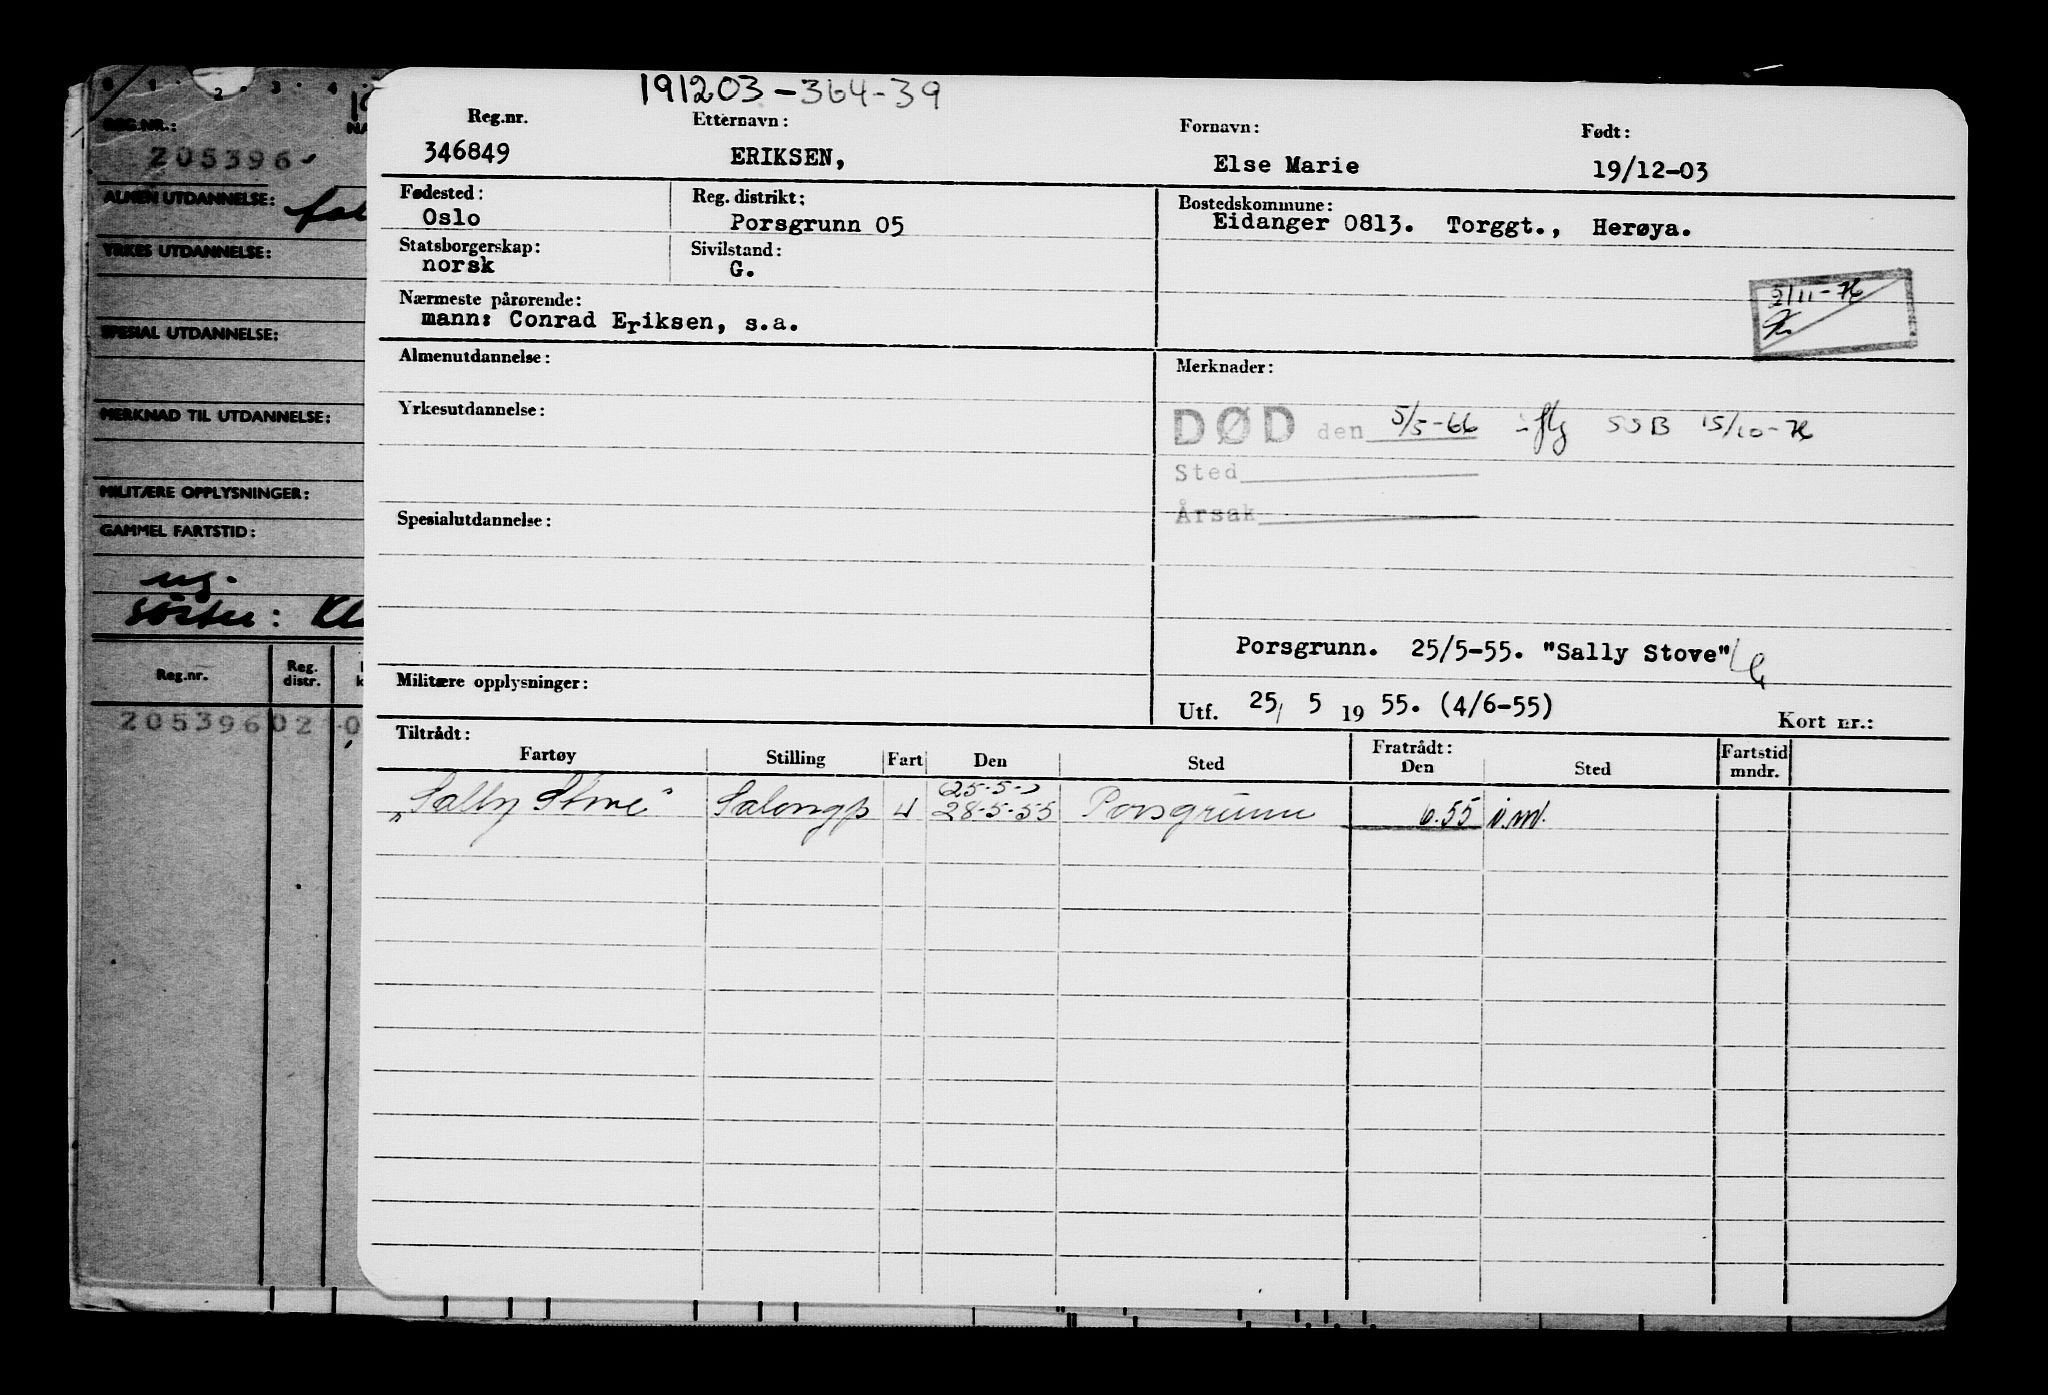 191203-364-39
Reg.nr. Etternavn: Fornavn: Født:
346849 ERIKSEN, Else Marie 19/12-03
Fødested: Reg. distrikt: Bostedskommune:
Oslo Porsgrunn 05 Eidanger 0813. Torggt., Herøya.
Statsborgerskap: Sivilstand:
norsk G.
5/11-76
Nærmeste pårørende:
mann: Conrad Eriksen, s.a.
Almenutdannelse: Merknader:
Yrkesutdannelse:
DØD den 5/5-66 SSB 15/10-76
Sted
Årsak
Spesialutdannelse:
Porsgrunn. 25/5-55. "Sally Stove"
Militære opplysninger:
Utf. 25/ 5 19 55. (4/6-55) Kort nr.:
Tiltrådt: Fratrådt:
Fartøy Stilling Fart Den Sted Den Sted Fartstid mndr.
25-5-
"Sally Stove" Salongp U 28-5-55 Porsgrunn 6.55 i.m.
REG.NR.: NA
205396-
ALMEN UTDANNELSE:
YRKES UTDANNELSE:
SPESIAL UTDANNELSE:
MERKNAD TIL UTDANNELSE:
MILITÆRE OPPLYSNINGER:
GAMMEL FARTSTID:
ug.
søster: Kl
Reg.nr. Reg. distr. k
205396 02 0